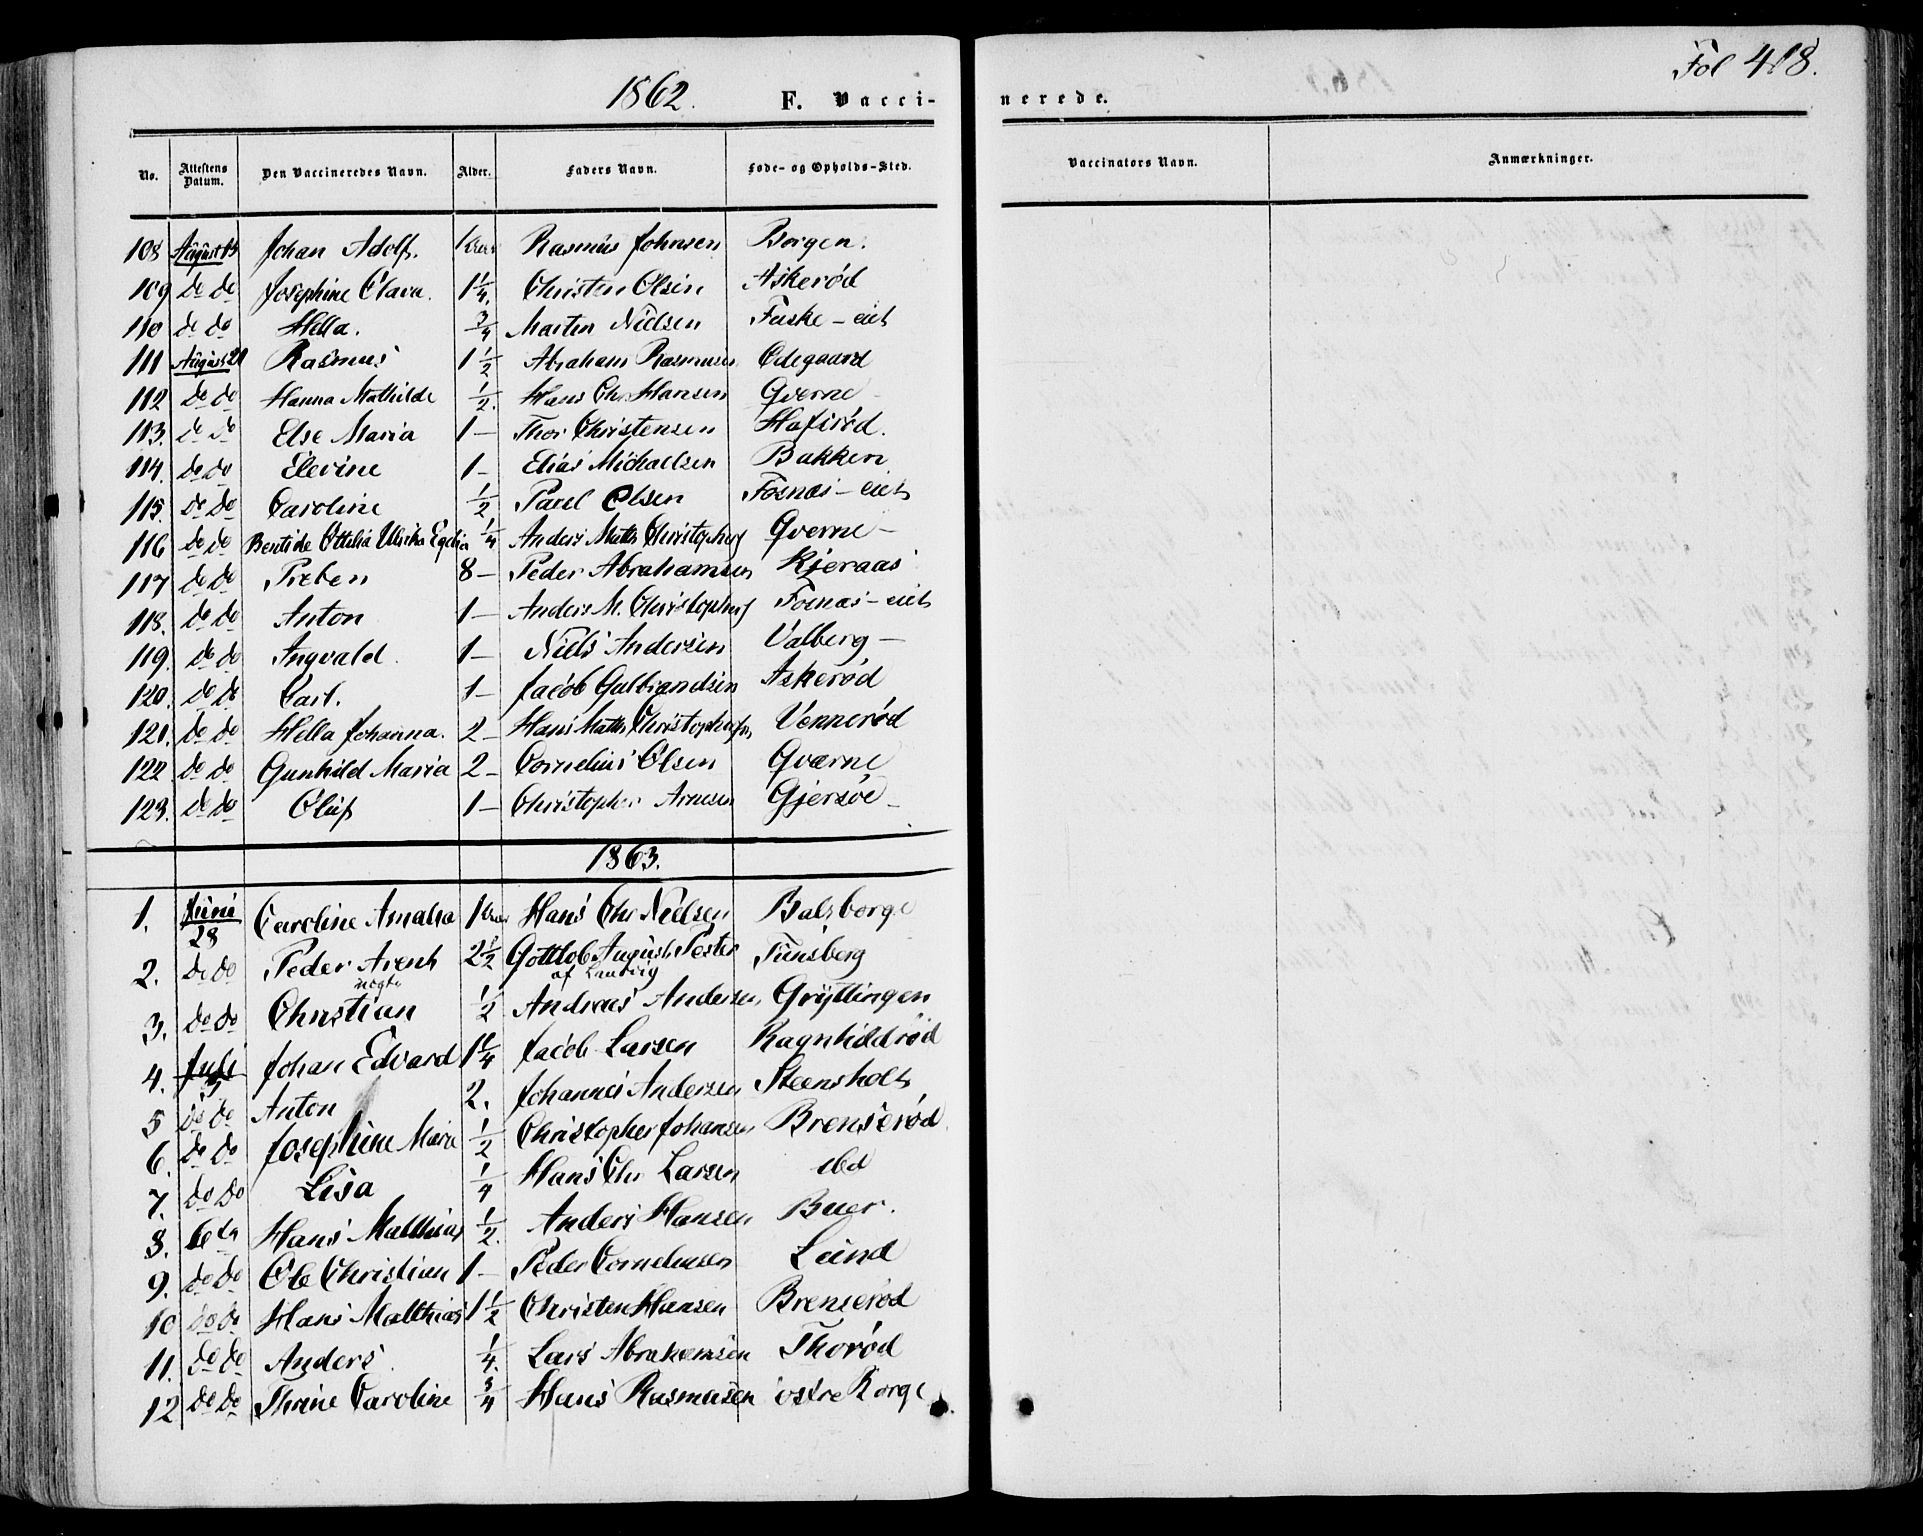 Fol 418.
1862. F. Vacci- nerede.
No. Attestens Datum. Den Vaccineredes Navn. Alder. Faders Navn. Føde- og Opholds-Sted. Vaccinators Navn. Anmærkninger.
108 August 15 Johan Adolf. 1 Rasmus Johnsen Borgen.
109 do do Josephine Clara. 1 1/4. Christen Olsen Askerød
110 do do Hella. 3/4 Martin Nielsen Fuske-eie
111 August 21 Rasmus 1 1/2 Abraham Rasmusen Ødegaard
112 do do Hanna Mathilde 1/2. Hans Chr Hansen Qverne
113. do do Else Maria 1 - Thor Christensen Hafsrød.
114. do do Elevine 1 - Elias Michaelsen Bakken
115. do do Caroline 1/2 Paul Olsen Fosnæs-eie
116 do do Ottilia Ulrika Egelia 1/4 Anders Math Christophers Qverne -
117 do do Preben 8 - Peder Abrahamsen Kjeraas
118. do do Anton 1 - Anders M. Christophers Fosnæs-eie
119. do do Ingvald. 1 - Niels Andersen Valberg -
120. do do Carl. 1 - Jacob Gulbrandsen Askerød
121. do do Hella Johanna. 2 - Hans Math Christophersen Vennerød
122 do do Gunhild Maria 2 - Cornelius Olsen Qværne
123. do do Oluf 1 - Christopher Arnesen Gjersøe -
1863.
1. Juni 28 Caroline Amalia 1 Hans Chr Nielsen Balsborge
2. do do Peder Arent 2 1/2 Gottlob August Pester Tunsberg
uægte af Laurvig
3. do do Christian 1/2 Andreas Andersen Gryttingen
4. Juli 5 Johan Edvard 1 1/4 Jacob Larsen Ragnhildrød
5 do do Anton 2. Johannes Andersen Steensholt
6. do do Josephine Marie 1/2 Christopher Johansen Brenserød
7. do do Lisa 1/4 Hans Chr Larsen ibd
8. do do Hans Matthias 1/2. Anders Hansen Buer.
9. do do Ole Christian 1 - Peder Corneliusen Lund
10 do do Hans Matthias 1 1/2 Christen Hansen Brenserød
11. do do Anders. 1/4. Lars Abrahamsen Thorød
12 do do Thrine Caroline 3/4 Hans Rasmusen østre Borge